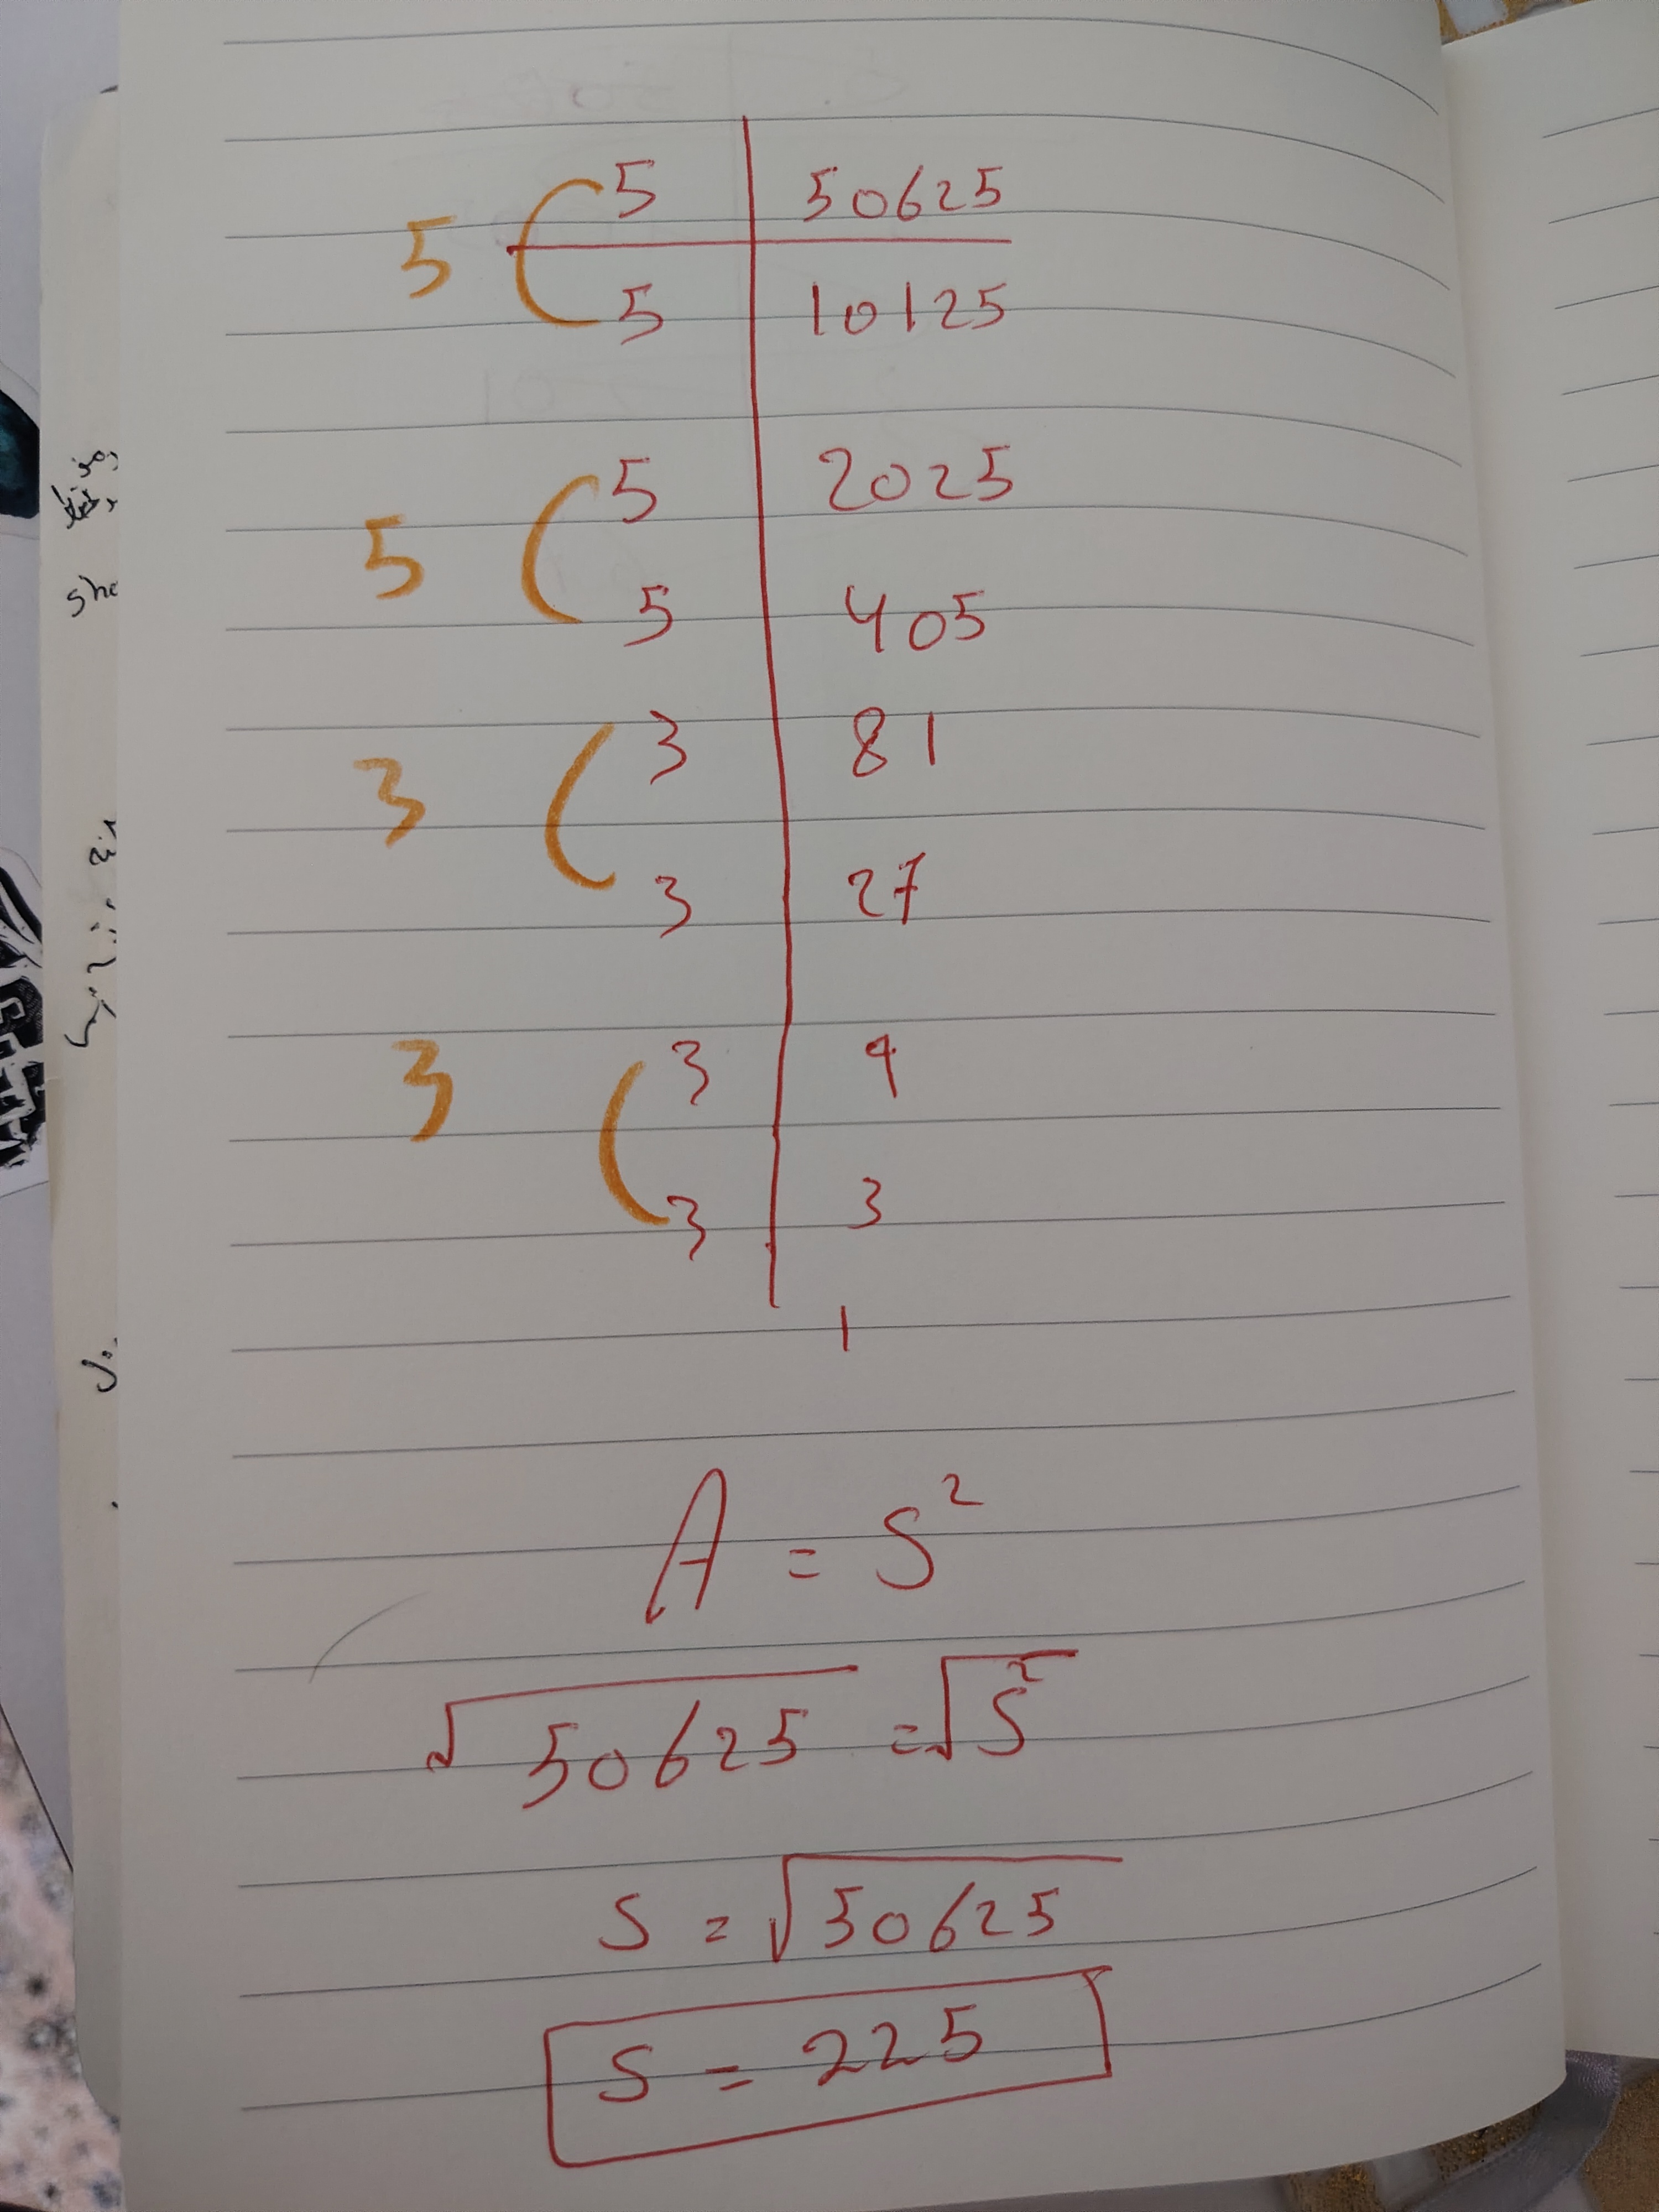 5 5 | 50625
5 | 10125
5 5 | 2025
5 | 405
3 3 | 81
3 | 27
3 3 | 9
3 | 3
1
A = S²
√50625 = √S²
S = √50625
S = 225
she